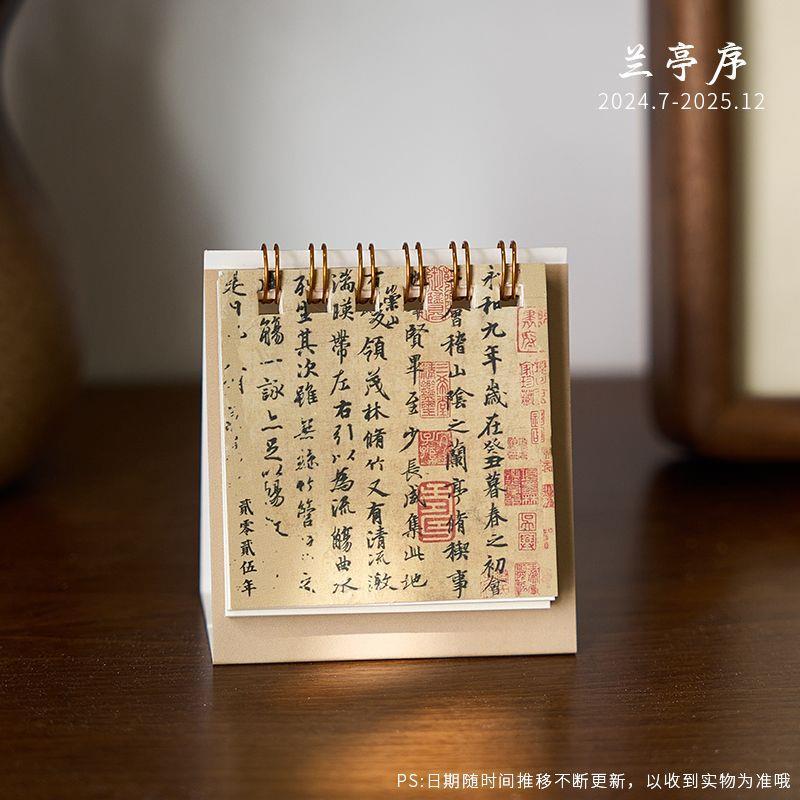 兰亭序
2024.7-2025.12
永和九年歲在癸丑暮春之初會
會稽山陰之蘭亭脩稧事
賢畢至少長咸集此地
崇山
領茂林脩竹又有清流激
湍暎帶左右引以為流觴曲水
列坐其次雖無絲竹管
觴一詠亦足以暢
是日
貳零貳伍年
PS:日期随时间推移不断更新，以收到实物为准哦